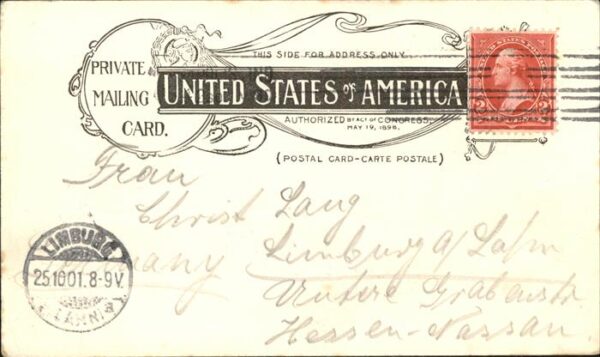 THIS SIDE FOR ADDRESS ONLY.
PRIVATE
MAILING
CARD.
UNITED STATES OF AMERICA
AUTHORIZED BY ACT OF CONGRESS,
MAY 19, 1898.
(POSTAL CARD-CARTE POSTALE)
Frau
Christ Lang
Limburg a/Lahn
Untere Grabenstr
Hessen-Nassau
Germany
LIMBURG
25.10.01.8-9V.
(LAHN)
2 2